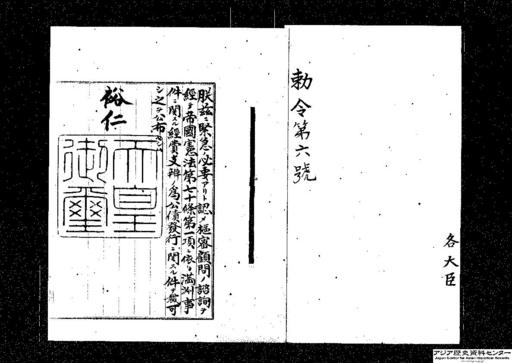 勅令第六號
各大臣
朕茲ニ緊急ノ必要アリト認メ樞密顧問ノ諮詢ヲ
經テ帝國憲法第七十條第一項ニ依リ滿洲事
件ニ關スル經費支辨ノ爲公債發行ニ關スル件ヲ裁可
シ之ヲ公布セシム
裕仁
天皇
御璽
アジア歴史資料センター
Japan Center for Asian Historical Records